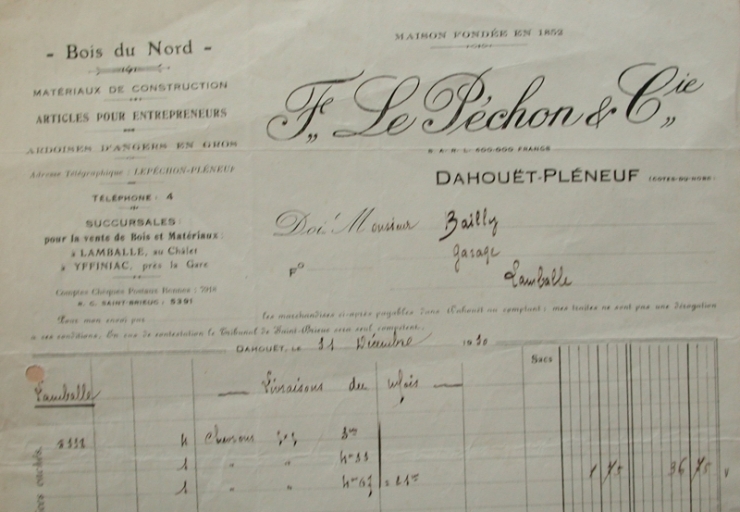 - Bois du Nord -
MATÉRIAUX DE CONSTRUCTION
ARTICLES POUR ENTREPRENEURS
ARDOISES D'ANGERS EN GROS
Adresse Télégraphique : LEPÉCHON-PLÉNEUF
TÉLÉPHONE : 4
SUCCURSALES :
pour la vente de Bois et Matériaux :
à LAMBALLE, au Châlet
à YFFINIAC, près la Gare
Comptes Chèques Postaux Rennes : 7918
R. C. SAINT-BRIEUC : 5391
MAISON FONDÉE EN 1852
Fs. Le Péchon & Cie
S. A. R. L. 600.000 FRANCS
DAHOUËT-PLÉNEUF (COTES-DU-NORD)
Doit Monsieur Bailly
garage
Fo Lamballe
Pour mon envoi par
les marchandises ci-après payables dans Dahouët au comptant ; mes traites ne sont pas une dérogation
à ces conditions. En cas de contestation le Tribunal de Saint-Brieuc sera seul compétent.
DAHOUËT, LE 31 Décembre 1930
Sacs
Lamballe
Livraisons du Mois
4 Chevrons
1 " "
1 " "
1 75 36 75